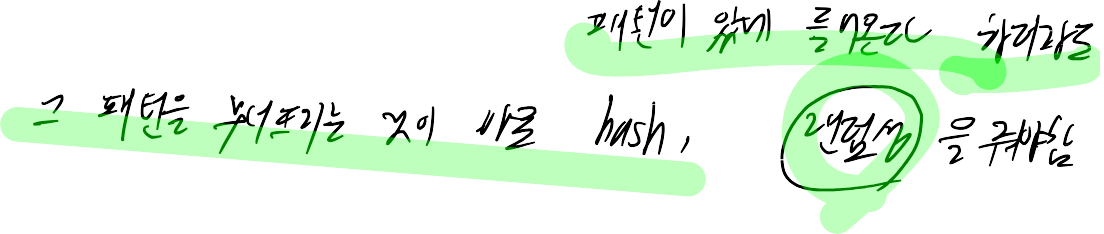 패턴이 있게 들어온다 하더라도
그 패턴을 부서뜨리는 것이 바로 hash, 랜덤성을 줘야함